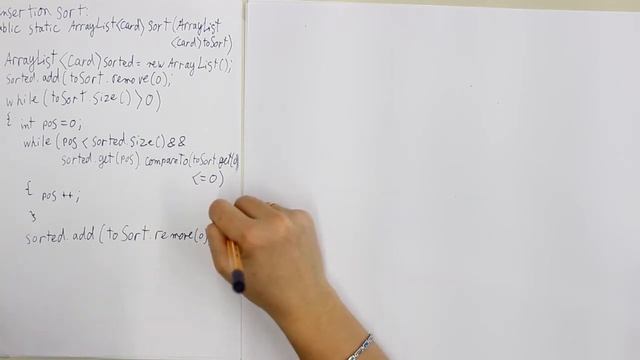 nsertion sort:
ublic static ArrayList<Card> sort(ArrayList
<Card>toSort)
ArrayList<Card>sorted=newArrayList();
sorted.add(toSort.remove(0);
while(toSort.size()>0)
{ int pos=0;
while(pos<sorted.size()&&
sorted.get(pos) compareTo(toSort.get(0)
<=0)
{ pos++;
}
sorted.add(toSort.remove(0)